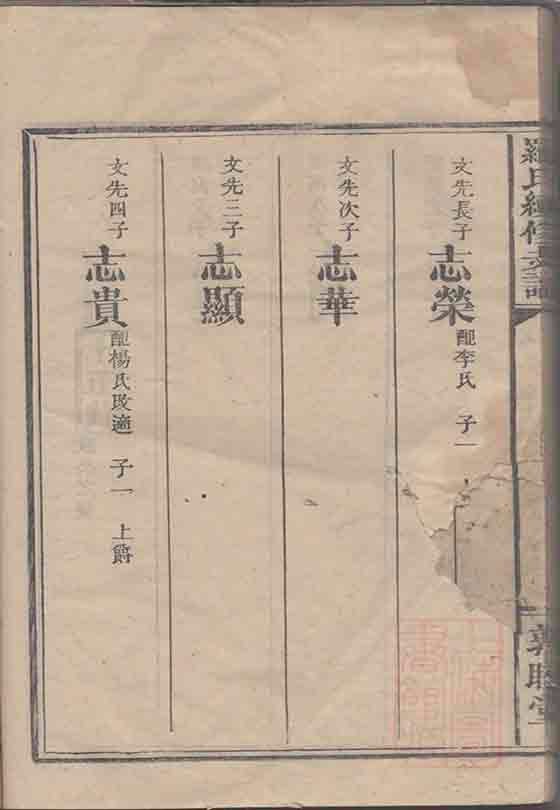 羅氏續修支譜
敦睦堂
文先長子 志榮 配李氏 子一
文先次子 志華
文先三子 志顯
文先四子 志貴 配楊氏改適 子一 上爵